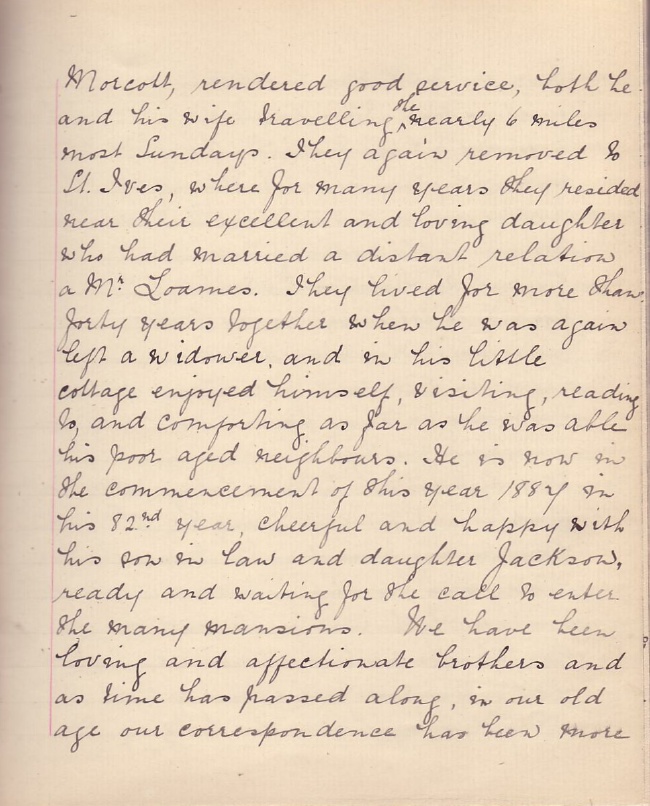 Morcott, rendered good service, both he
and his wife travelling the nearly 6 miles
most Sundays. They again removed to
St. Ives, where for many years they resided
near their excellent and loving daughter
who had married a distant relation
a Mr. Loames. They lived for more than
forty years together when he was again
left a widower, and in his little
cottage enjoyed himself, visiting, reading
to, and comforting as far as he was able
his poor aged neighbours. He is now in
the commencement of this year 1887 in
his 82nd year, cheerful and happy with
his son in law and daughter Jackson,
ready and waiting for the call to enter
the many mansions. We have been
loving and affectionate brothers and
as time has passed along, in our old
age our correspondence has been more